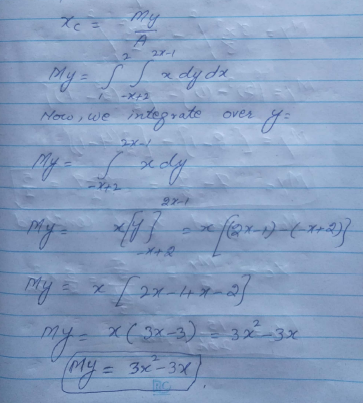 x_c = My / A
My = ∫_1^2 ∫_{-x+2}^{2x-1} x dy dx
Now, we integrate over y=
My = ∫_{-x+2}^{2x-1} x dy
My = x[y]_{-x+2}^{2x-1} = x[(2x-1) -(-x+2)]
My = x [2x-1+x-2]
My = x(3x-3) = 3x² -3x
My = 3x² -3x.